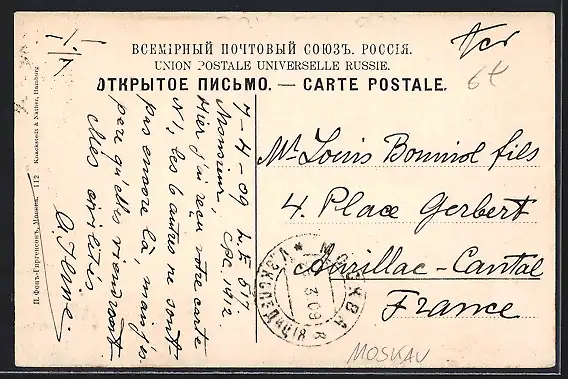 ВСЕМІРНЫЙ ПОЧТОВЫЙ СОЮЗЪ. РОССІЯ.
UNION POSTALE UNIVERSELLE RUSSIE.
ОТКРЫТОЕ ПИСЬМО. — CARTE POSTALE.
64
7-4-09 L.E. 517
Monsieur, CPC. 1912
Hier j'ai reçu votre carte
N°1, les 6 autres ne sont
pas encore là, mais j'es
père qu'elles viendront
Mes civilités
Mr Louis Bonniol fils
4. Place Gerbert
Aurillac - Cantal
France
МОСКВА
ЭКСПЕДИЦІЯ
MOSKAU
П. Фонъ-Гиргенсонъ, Москва. 112 Knackstedt & Näther, Hamburg